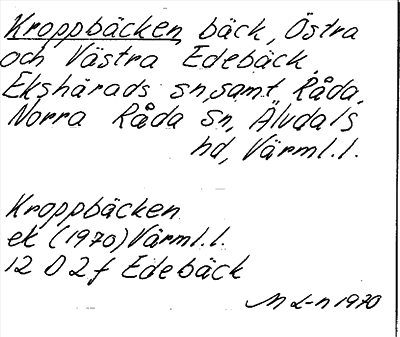 Kroppbäcken, bäck, Östra
och Västra Edebäck,
Ekshärads sn, samt Råda,
Norra Råda sn, Älvdals
hd, Värml.l.
Kroppbäcken
ek (1970) Värml.l.
12 D 2 f Edebäck
M L-n 1970